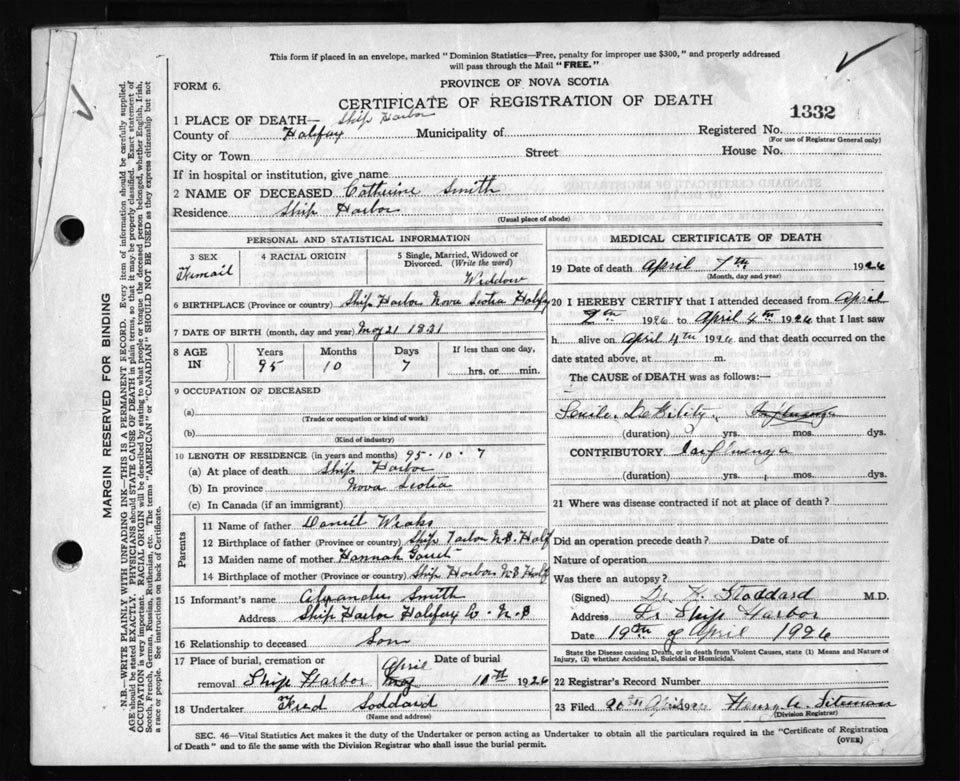 This form if placed in an envelope, marked "Dominion Statistics—Free, penalty for improper use $300," and properly addressed
will pass through the Mail "FREE."
FORM 6.
PROVINCE OF NOVA SCOTIA
CERTIFICATE OF REGISTRATION OF DEATH
1332
1 PLACE OF DEATH— Ship Harbor
County of Halifax Municipality of Registered No.
(For use of Registrar General only)
City or Town Street House No.
If in hospital or institution, give name
2 NAME OF DECEASED Catherine Smith
Residence Ship Harbor
(Usual place of abode)
PERSONAL AND STATISTICAL INFORMATION
3 SEX 4 RACIAL ORIGIN 5 Single, Married, Widowed or
Divorced. (Write the word)
Femail Widdow
6 BIRTHPLACE (Province or country) Ship Harbor Nova Scotia Halifx
7 DATE OF BIRTH (month, day and year) May 21 1831
8 AGE IN Years Months Days If less than one day,
95 10 7 hrs. or min.
9 OCCUPATION OF DECEASED
(a)
(Trade or occupation or kind of work)
(b)
(Kind of industry)
10 LENGTH OF RESIDENCE (in years and months) 95-10-7
(a) At place of death Ship Harbor
(b) In province Nova Scotia
(c) In Canada (if an immigrant)
Parents
11 Name of father Daniel Weaks
12 Birthplace of father (Province or country) Ship Harbor N.S Half
13 Maiden name of mother Hannah
14 Birthplace of mother (Province or country) Ship Harbor N.S Halfx
15 Informant's name Smith
Address Ship Harbor Halifax Co. N.S
16 Relationship to deceased Son
17 Place of burial, cremation or Date of burial
removal Ship Harbor April 10th 1926
18 Undertaker Fred Soddard
(Name and address)
MEDICAL CERTIFICATE OF DEATH
19 Date of death April 7th 1926
(Month, day and year)
20 I HEREBY CERTIFY that I attended deceased from April
2th 1926 to April 4th 1926 that I last saw
h alive on April 4th 1926 and that death occurred on the
date stated above, at m.
The CAUSE of DEATH was as follows:—
Senile Debility
(duration) yrs. mos. dys.
CONTRIBUTORY Influenza
(duration) yrs. mos. dys.
21 Where was disease contracted if not at place of death?
Did an operation precede death? Date of
Nature of operation
Was there an autopsy?
(Signed) Dr. K. Stoddard M.D.
Address Lr Ship Harbor
Date 19th of April 1926
State the Disease causing Death, or in death from Violent Causes, state (1) Means and Nature of
Injury, (2) whether Accidental, Suicidal or Homicidal.
22 Registrar's Record Number
23 Filed 20th April 192 Henry A.
(Division Registrar)
SEC. 46—Vital Statistics Act makes it the duty of the Undertaker or person acting as Undertaker to obtain all the particulars required in the "Certificate of Registration
of Death" and to file the same with the Division Registrar who shall issue the burial permit.
(OVER)
MARGIN RESERVED FOR BINDING
N.B.—WRITE PLAINLY WITH UNFADING INK—THIS IS A PERMANENT RECORD. Every item of information should be carefully supplied.
AGE should be stated EXACTLY. PHYSICIANS should STATE CAUSE OF DEATH in plain terms, so that it may be properly classified. Exact statement of
OCCUPATION is very important. RACIAL ORIGIN will be described by stating to what people or tongue the deceased person belonged, whether English, Irish,
Scotch, French, German, Russian, Ruthenian, etc. The terms "AMERICAN" or "CANADIAN" SHOULD NOT BE USED as they express citizenship but not
a race or people. See instructions on back of Certificate.